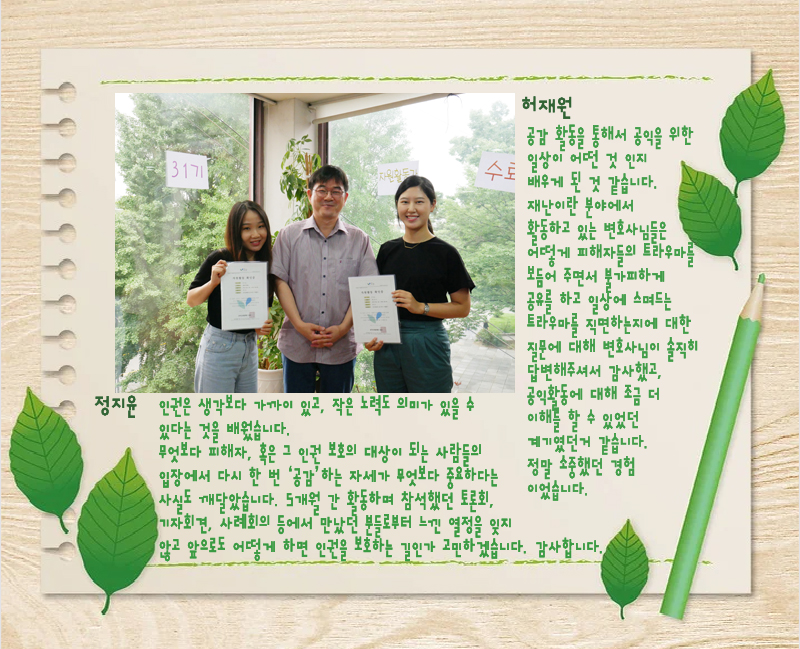 31기
자원활동가
수료
허재원
공감 활동을 통해서 공익을 위한
일상이 어떤 것 인지
배우게 된 것 같습니다.
재난이란 분야에서
활동하고 있는 변호사님들은
어떻게 피해자들의 트라우마를
보듬어 주면서 불가피하게
공유를 하고 일상에 스며드는
트라우마를 직면하는지에 대한
질문에 대해 변호사님이 솔직히
답변해주셔서 감사했고,
공익활동에 대해 조금 더
이해를 할 수 있었던
계기였던거 같습니다.
정말 소중했던 경험
이었습니다.
정지윤
인권은 생각보다 가까이 있고, 작은 노력도 의미가 있을 수
있다는 것을 배웠습니다.
무엇보다 피해자, 혹은 그 인권 보호의 대상이 되는 사람들의
입장에서 다시 한 번 '공감'하는 자세가 무엇보다 중요하다는
사실도 깨달았습니다. 5개월 간 활동하며 참석했던 토론회,
기자회견, 사례회의 등에서 만났던 분들로부터 느낀 열정을 잊지
않고 앞으로도 어떻게 하면 인권을 보호하는 길인가 고민하겠습니다. 감사합니다.